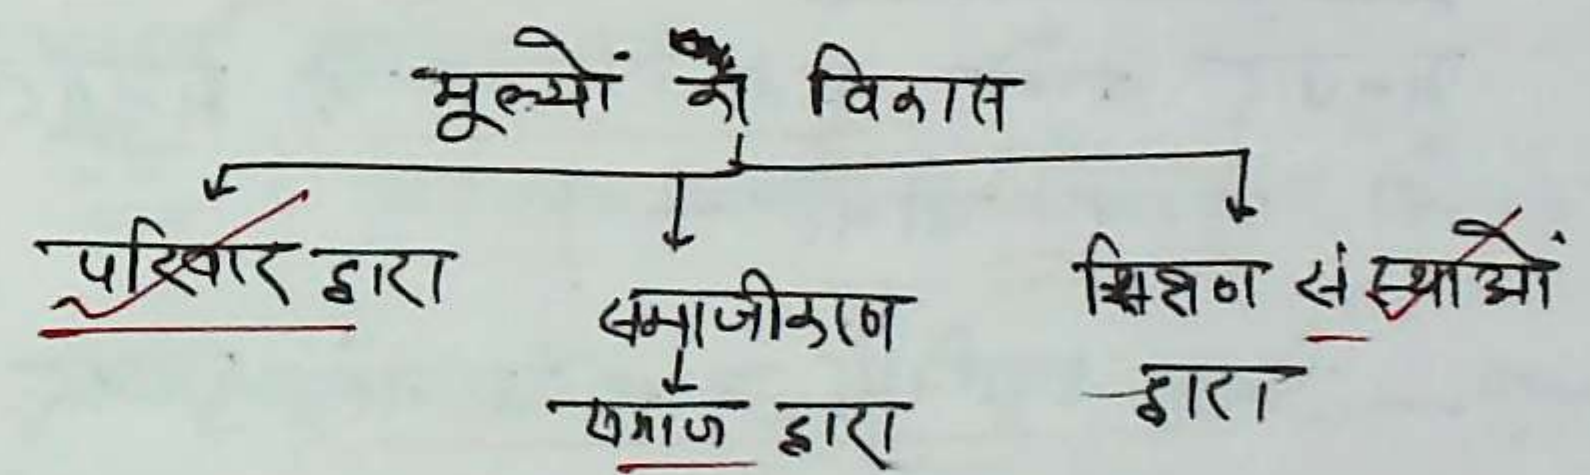 मूल्यों का विकास
परिवार द्वारा
समाजीकरण
समाज द्वारा
शिक्षण संस्थाओं
द्वारा